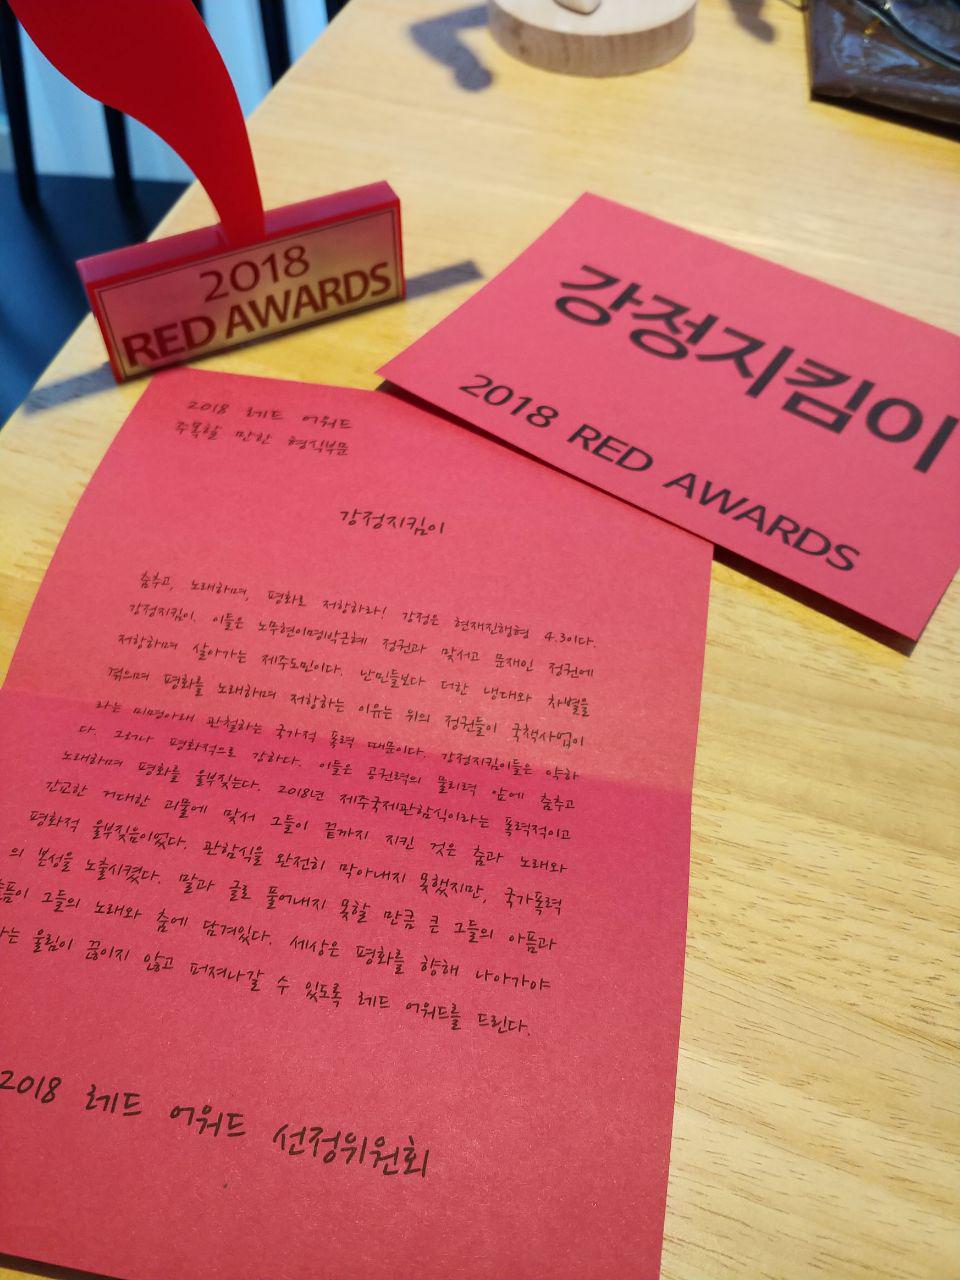 2018
RED AWARDS
강정지킴이
2018 RED AWARDS
2018 레드 어워드
주목할 만한 형식부문
강정지킴이
춤추고, 노래하며, 평화로 저항하라! 강정은 현재진행형 4.3이다.
강정지킴이. 이들은 노무현이명박근혜 정권과 맞서고 문재인 정권에
저항하며 살아가는 제주도민이다. 난민들보다 더한 냉대와 차별을
겪으며 평화를 노래하며 저항하는 이유는 위의 정권들이 국책사업이
라는 미명아래 관철하는 국가적 폭력 때문이다. 강정지킴이들은 약하
다. 그러나 평화적으로 강하다. 이들은 공권력의 물리력 앞에 춤추고
노래하며 평화를 울부짖는다. 2018년 제주국제관함식이라는 폭력적이고
간교한 거대한 괴물에 맞서 그들이 끝까지 지킨 것은 춤과 노래와
평화적 울부짖음이었다. 관함식을 완전히 막아내지 못했지만, 국가폭력
의 본성을 노출시켰다. 말과 글로 풀어내지 못할 만큼 큰 그들의 아픔과
슬픔이 그들의 노래와 춤에 담겨있다. 세상은 평화를 향해 나아가야
하는 울림이 끊이지 않고 퍼져나갈 수 있도록 레드 어워드를 드린다.
2018 레드 어워드 선정위원회